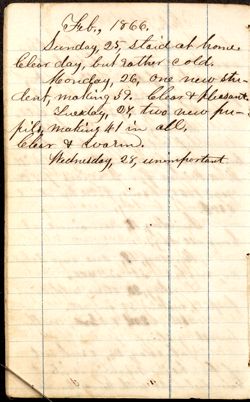 Feb., 1866.
Sunday, 25, staid at home.
Clear day, but rather cold.
Monday, 26, one new stu-
dent, making 39. Clear & pleasant.
Tuesday, 27, two new pu-
pils, making 41 in all.
Clear & warm.
Wednesday, 28, unimportant